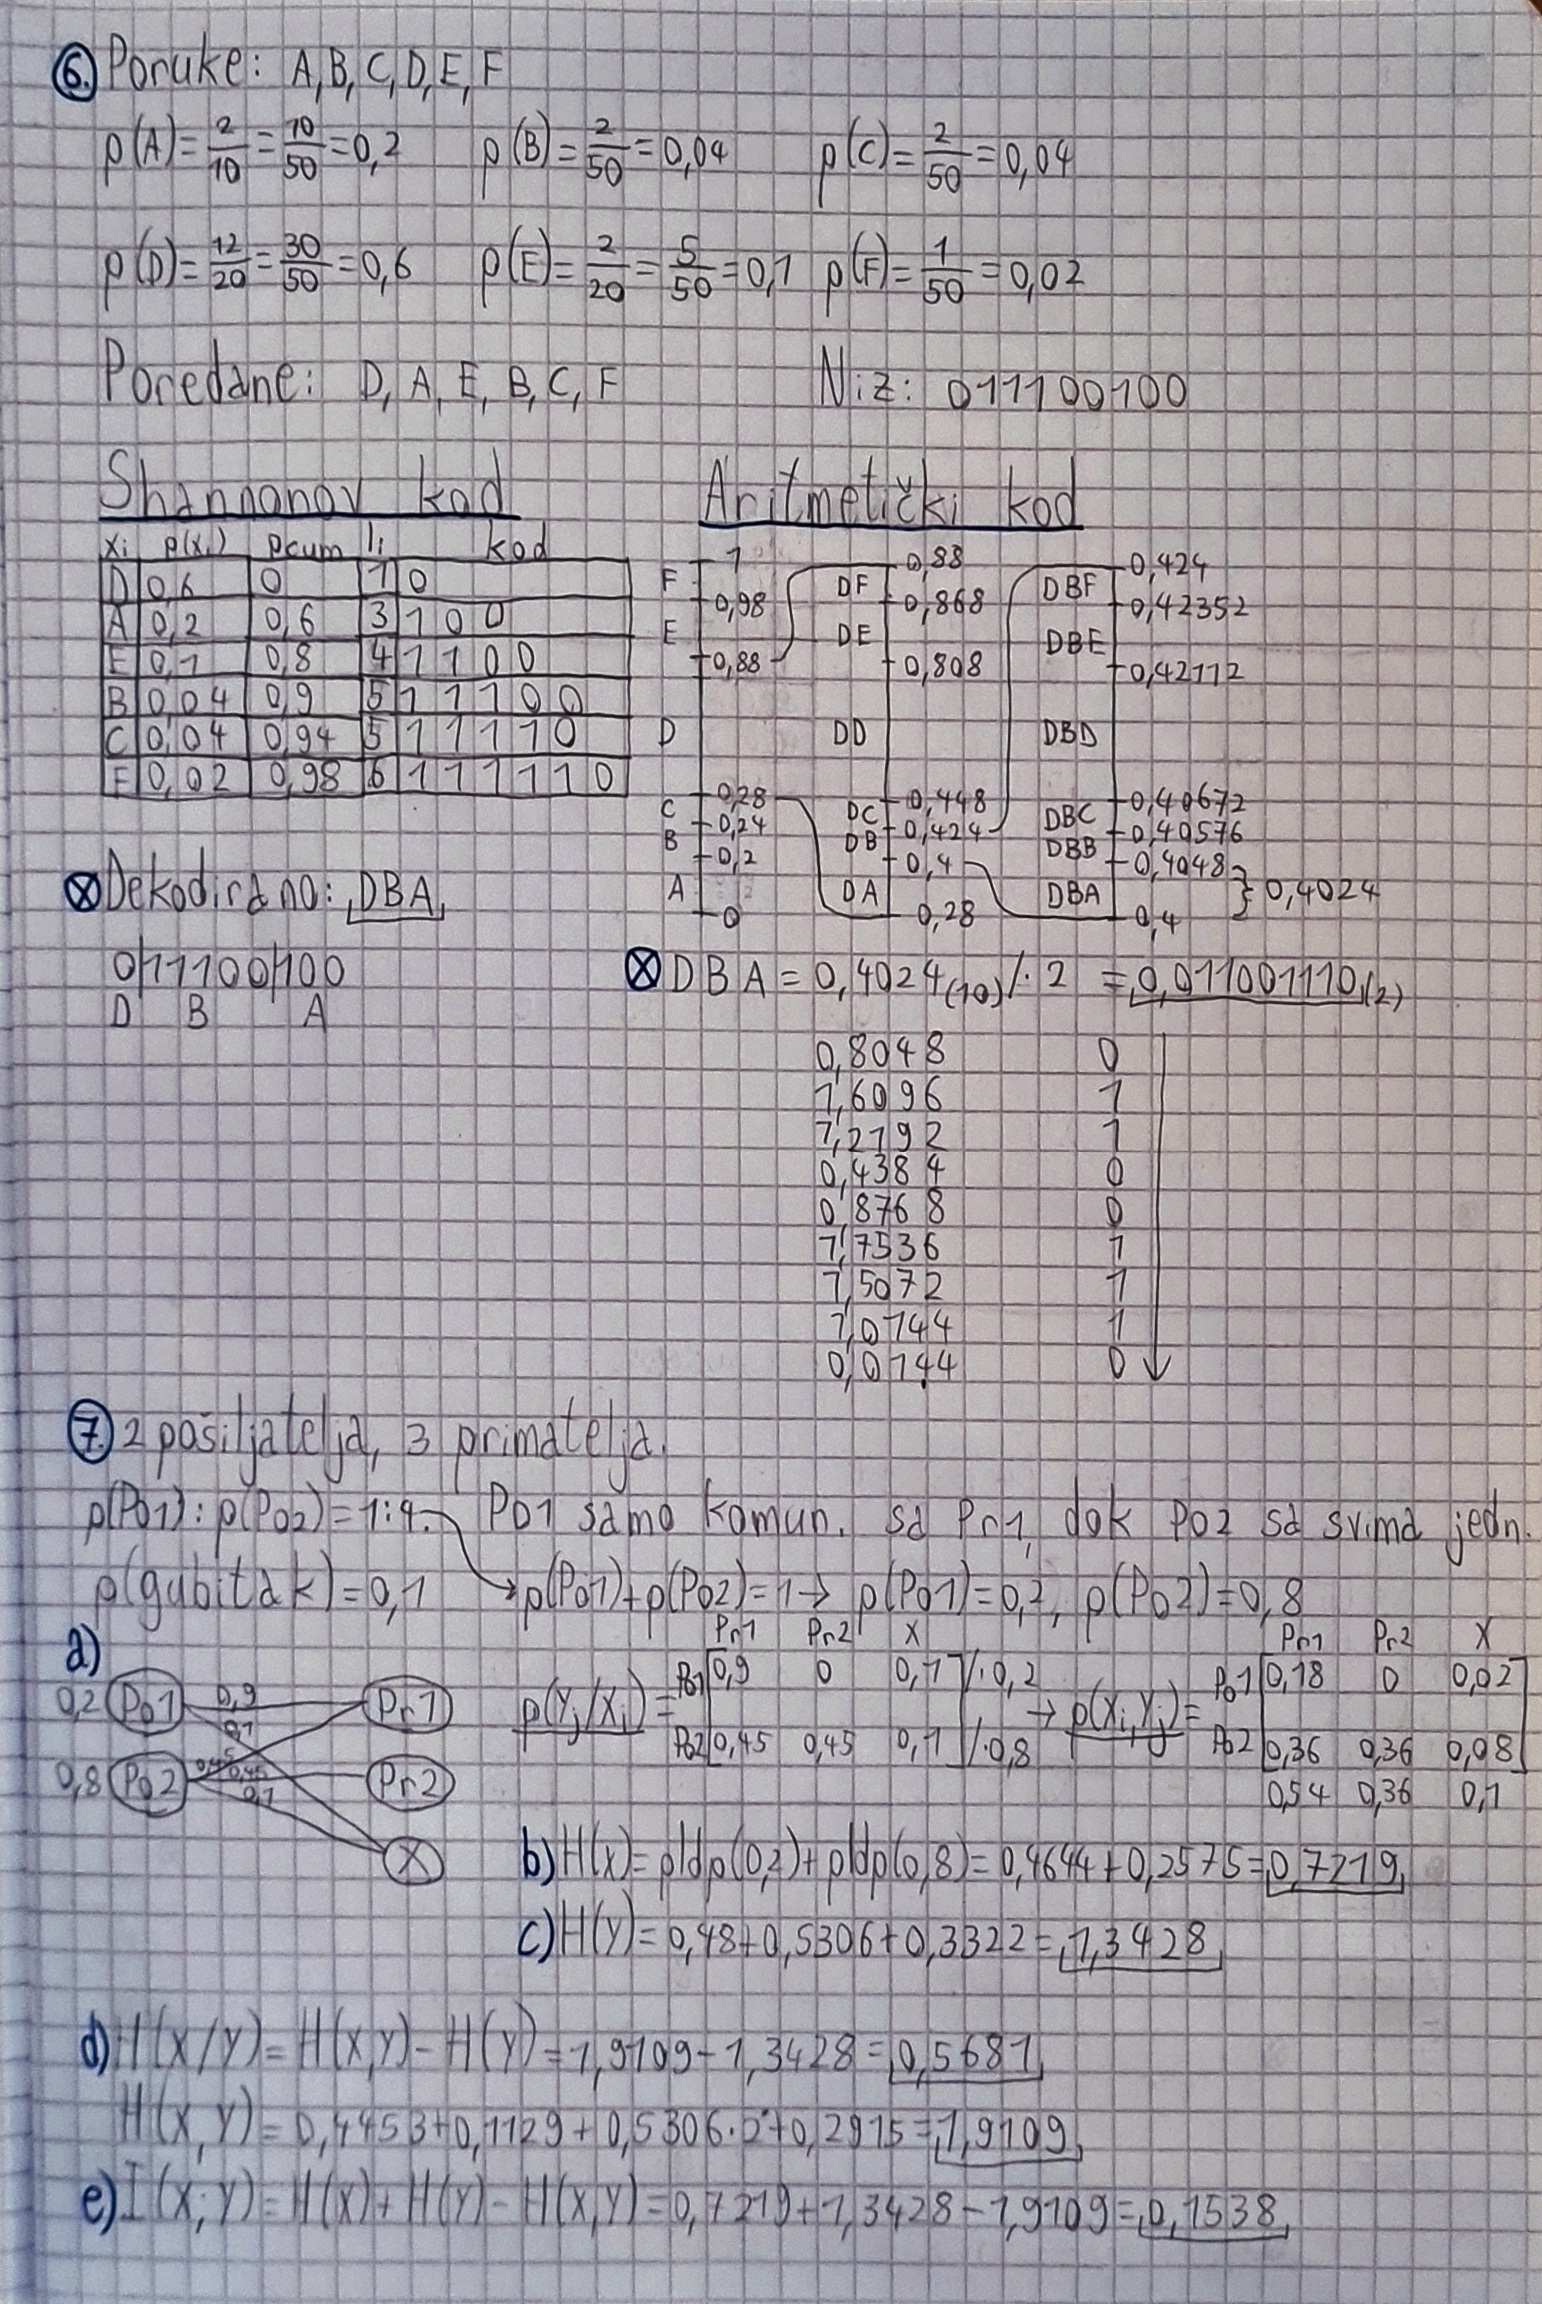 6. Poruke: A, B, C, D, E, F
p(A)=2/10=10/50=0,2 p(B)=2/50=0,04 p(C)=2/50=0,04
p(D)=12/20=30/50=0,6 p(E)=2/20=5/50=0,1 p(F)=1/50=0,02
Poredane: D, A, E, B, C, F Niz: 011100100
Shannonov kod
xi p(xi) Pcum li kod
D 0,6 0 1 0
A 0,2 0,6 3 1 0 0
E 0,1 0,8 4 1 1 0 0
B 0,04 0,9 5 1 1 1 0 0
C 0,04 0,94 5 1 1 1 1 0
F 0,02 0,98 6 1 1 1 1 1 0
⊗ Dekodirano: DBA
0/11100/100
D B A
Aritmetički kod
1 0,88 0,424
F DF DBF
0,98 0,868 0,42352
E DE DBE
0,88 0,808 0,42112
D DD DBD
0,28 0,448 0,40672
C DC DBC
0,24 0,424 0,40576
B DB DBB
0,2 0,4 0,4048
A DA DBA } 0,4024
0 0,28 0,4
⊗ DBA = 0,4024(10) /·2 = 0,011001110(2)
0,8048 0
1,6096 1
1,2192 1
0,4384 0
0,8768 0
1,7536 1
1,5072 1
1,0144 1
0,0144 0
7. 2 pošiljatelja, 3 primatelja.
p(Po1):p(Po2)=1:4. Po1 samo komun. sa Pr1, dok Po2 sa svima jedn.
p(gubitak)=0,1 → p(Po1)+p(Po2)=1 → p(Po1)=0,2, p(Po2)=0,8
a)
0,2 Po1 0,9 Pr1
0,1
0,8 Po2 0,45 0,45 Pr2
0,1
X
Pr1 Pr2 X
p(Yj/Xi)= Po1 [0,9 0 0,1] /·0,2
Po2 [0,45 0,45 0,1] /·0,8
Pr1 Pr2 X
→ p(Xi,Yj)= Po1 [0,18 0 0,02]
Po2 [0,36 0,36 0,08]
0,54 0,36 0,1
b) H(X)=pldp(0,2)+pldp(0,8)=0,4644+0,2575=0,7219
c) H(Y)=0,48+0,5306+0,3322=1,3428
d) H(X/Y)=H(X,Y)-H(Y)=1,9109-1,3428=0,5681
H(X,Y)=0,4453+0,1129+0,5306·2+0,2915=1,9109
e) I(X;Y)=H(X)+H(Y)-H(X,Y)=0,7219+1,3428-1,9109=0,1538